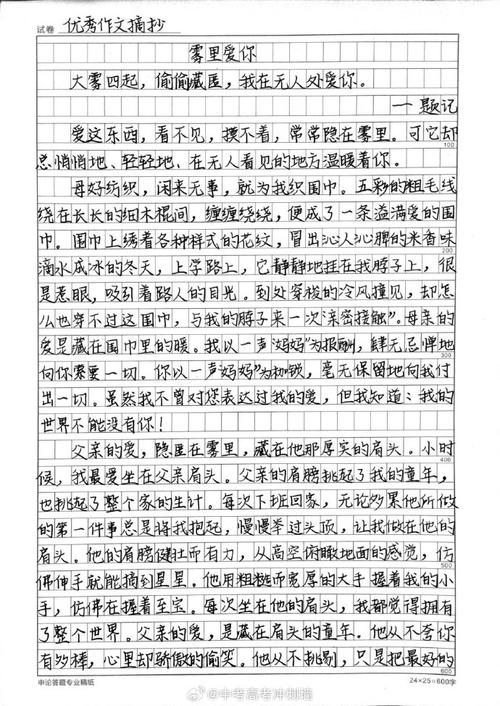 试卷 优秀作文摘抄
雾里爱你
大雾四起，偷偷藏匿，我在无人处爱你。
——题记
爱这东西，看不见，摸不着，常常隐在雾里。可它却
100
总悄悄地、轻轻地、在无人看见的地方温暖着你。
母好纺织，闲来无事，就为我织围巾。五彩的粗毛线
绕在长长的细木棍间，缠缠绕绕，便成了一条溢满爱的围
巾。围巾上绣着各种样式的花纹，冒出沁人沁脾的米香味
200
滴水成冰的冬天，上学路上，它静静地挂在我脖子上，很
是惹眼，吸引着路人的目光。到处穿梭的冷风撞见，却怎
么也穿不过这围巾，与我的脖子来一次“亲密接触”。母亲的
爱是藏在围巾里的暖。我以一声“妈妈”为报酬，肆无忌惮地
300
向你索要一切。你以一声“妈妈”为枷锁，毫无保留地向我付
出一切。虽然我不曾对您表达过我的爱，但我知道：我的
世界不能没有你！
父亲的爱，隐匿在雾里，藏在他那厚实的肩头。小时
400
候，我最爱坐在父亲肩头。父亲的肩膀挑起了我的童年，
也挑起了整个家的生计。每次下班回家，无论多累他所做
的第一件事总是将我抱起，慢慢举过头顶，让我做在他的
肩头。他的肩膀健壮而有力，从高空俯瞰地面的感觉，仿
500
佛伸手就能摘到星星。他用粗糙而宽厚的大手握着我的小
手，仿佛在握着至宝。每次坐在他的肩头，我都觉得拥有
了整个世界。父亲的爱，是藏在肩头的童年。他从不夸你
有多棒，心里却骄傲的偷笑。他从不挑剔，只是把最好的
600
申论答题专业稿纸 24×25=600字
@中考高考冲刺喵